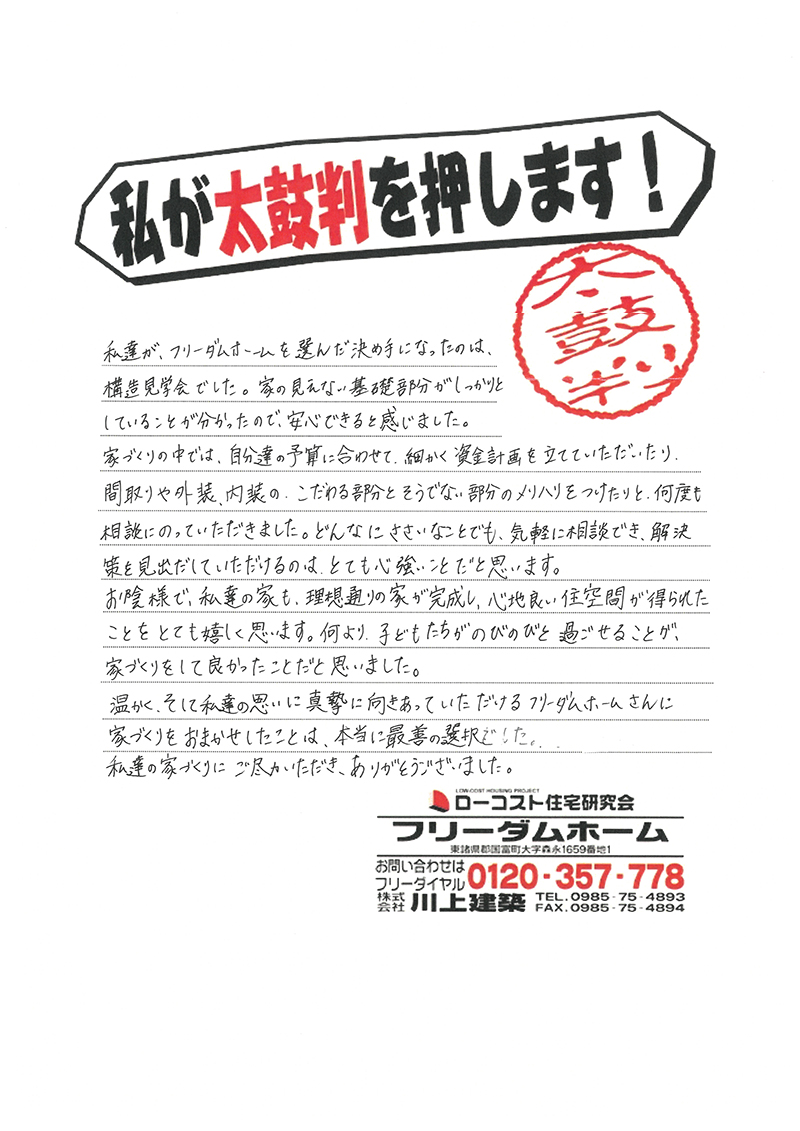 私が太鼓判を押します!
太鼓判
私達が、フリーダムホームを選んだ決め手になったのは、
構造見学会でした。家の見えない基礎部分がしっかりと
していることが分かったので、安心できると感じました。
家づくりの中では、自分達の予算に合わせて、細かく資金計画を立てていただいたり、
間取りや外装、内装の、こだわる部分とそうでない部分のメリハリをつけたりと、何度も
相談にのっていただきました。どんなにささいなことでも、気軽に相談でき、解決
策を見出だしていただけるのは、とても心強いことだと思います。
お陰様で、私達の家も、理想通りの家が完成し、心地良い住空間が得られた
ことをとても嬉しく思います。何より、子どもたちがのびのびと過ごせることが、
家づくりをして良かったことだと思いました。
温かく、そして私達の思いに真摯に向きあっていただけるフリーダムホームさんに
家づくりをおまかせしたことは、本当に最善の選択でした。
私達の家づくりにご尽力いただき、ありがとうございました。
LOW-COST HOUSING PROJECT
ローコスト住宅研究会
フリーダムホーム
東諸県郡国富町大字森永1659番地1
お問い合わせは
フリーダイヤル 0120-357-778
株式会社 川上建築 TEL.0985-75-4893
FAX.0985-75-4894